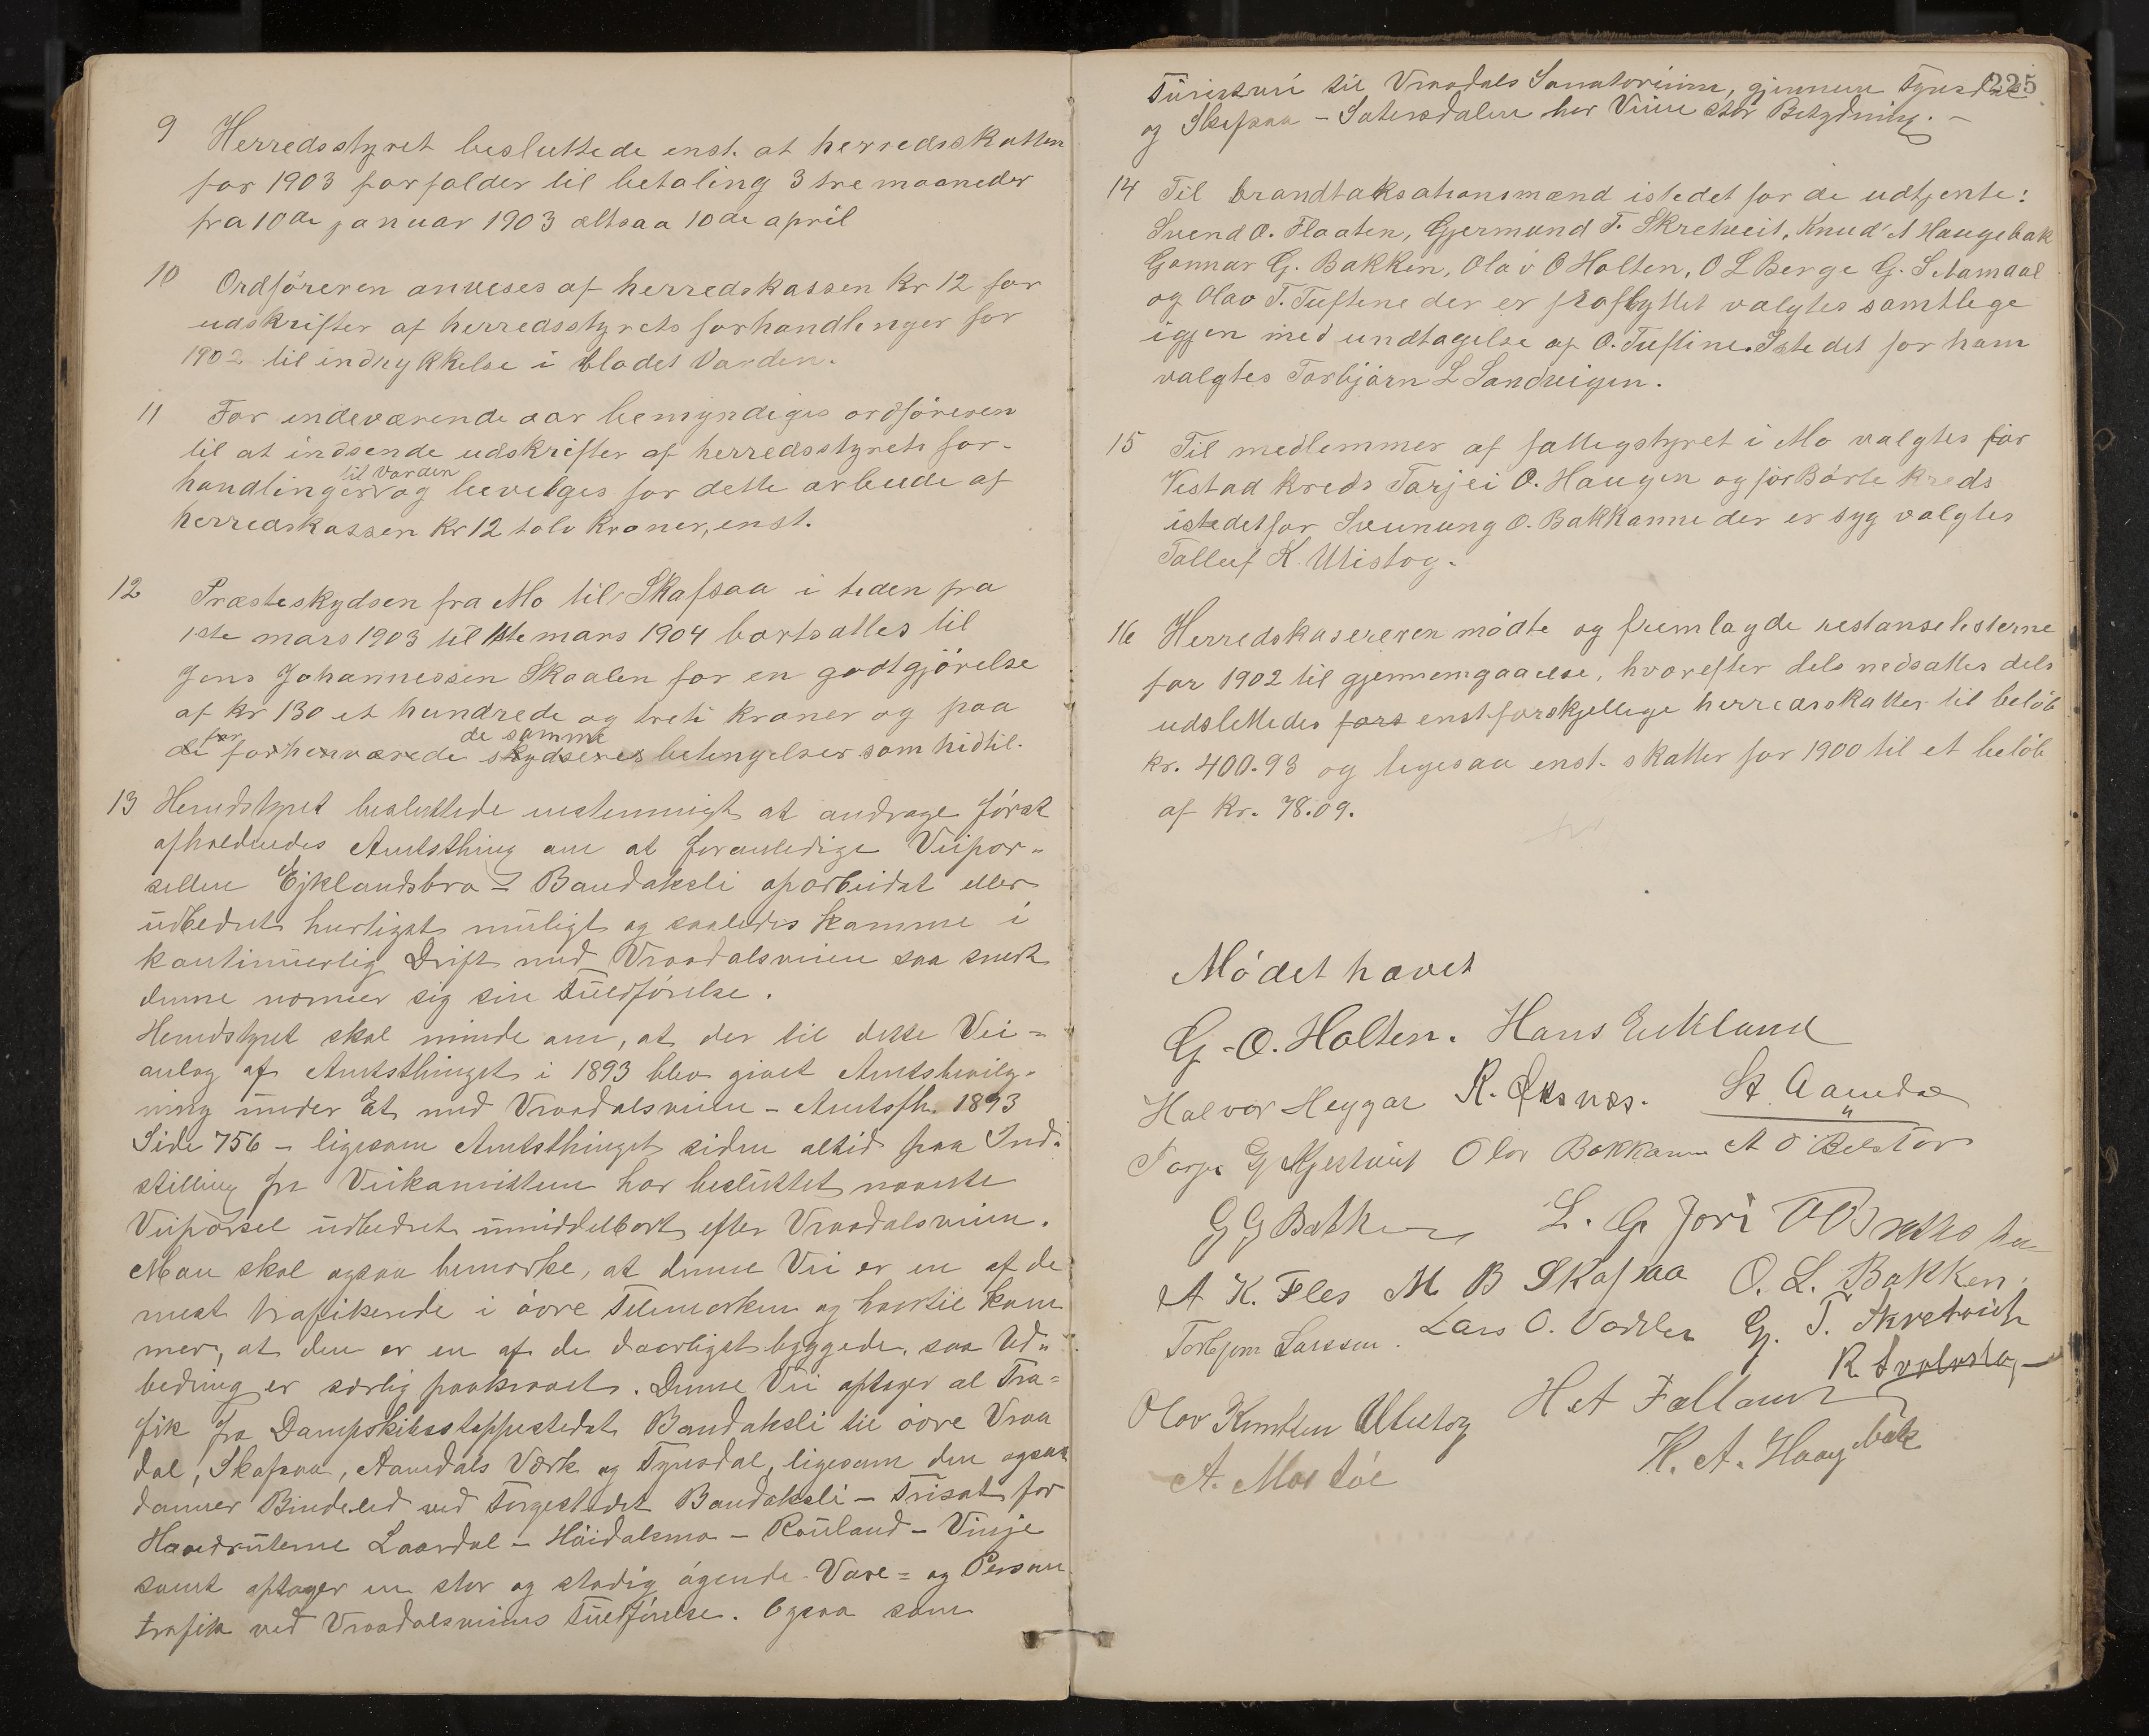 9 Herredsstyret besluttede enst. at herredsskatten
for 1903 forfalder til betaling 3 tre maaneder
fra 10de januar 1903 altsaa 10de april
10 Ordføreren anvises af herredskassen kr 12 for
udskrifter af herredsstyrets forhandlinger for
1902 til indrykkelse i bladet Varden.
11 For indeværende aar bemyndiges ordføreren
til at indsende udskrifter af herredsstyrets for-
til Varden
handlinger og bevilges for dette arbeide af
herredskassen kr 12 tolv kroner, enst.
12 Præsteskydsen fra Mo til Skafsaa i tiden fra
1ste mars 1903 til 1ste mars 1904 bortsattes til
Jens Johannessen Skaalen for en godtgjörelse
af kr 130 et hundrede og treti kroner og paa
for de samme
de forhenværede skydseres betingelser som hidtil.
13 Herredstyret besluttede enstemmigt at andrage först
afholdendes Amtsthing om at foranledige Veipar-
sellen Ejklandsbro - Bandaksli oparbeidet eller
udbedret hurtigst muligt og saaledes komme i
kontinuerlig Drift med Vraadalsveien saa snart
denne nærmer sig sin Fuldförelse.
Herredstyret skal minde om, at der til dette Vei=
anlæg af Amtsthinget i 1893 blev givet Amtsbevilg-
ning under Et med Vraadalsveien - Amtsfh. 1893
Side 756 - ligesom Amtsthinget siden altid paa Ind-
stilling fra Veikomitteen har besluttet nævnte
Veiparsel udbedret umiddelbart efter Vraadalsveien.
Man skal ogsaa bemærke, at denne Vei er en af de
mest trafikerede i övre Telemarken og hvortil kom
mer, at den er en af de daarligst byggede, saa Ud-
bedring er særlig paakrævet. Denne Vei optager al Tra=
fik fra Dampskibsstoppestedet Bandaksli til övre Vraa
dal, Skafsaa, Aamdals Værk og Fyresdal, ligesom den ogsaa
danner Bindeled ved Færgestedet Bandaksli - Triset for
Hovedruterne Laardal - Höidalsmo - Rauland - Vinje
samt optager en stor og stadig ögende Vare= og Person
trafik ved Vraadalsveiens Fuldförelse. Ogsaa som
225
Turistvei til Vraadals Sanatorium, gjennem Fyresdal
og Skafsaa - Sætersdalen har Veien stor Betydning. -
14 Til brandtaksationsmænd istedet for de udtjente:
Svend O. Flaaten, Gjermund T. Skretveit, Knud A Haugebak
Gunnar G. Bakken, Olav O Holten, O L Berge G. S Aamdal
og Olav T. Tuftene der er fraflyttet valgtes samtlege
igjen med undtagelse af O. Tuftine. Istedet for ham
valgtes Torbjörn L Sandvigen.
15 Til medlemmer af fattigstyret i Mo valgtes for
Vestad kreds Tarjei O. Haugen og for Börte kreds
istedetfor Sveinung O. Bakkanne der er syg valgtes
Tallef K Utistog.
16 Herredskasereren mödte og fremlagde restanselisterne
for 1902 til gjennemgaaelse, hvorefter dels nedsattes dels
udslettedes fors enst. forskjellige herredsskatter til belöb
kr. 400.93 og ligesaa enst. skatter for 1900 til et belöb
af kr. 78.09.
Mödet hævet
G. O. Holten. Hans Eikland
Halvor Heggar R. Oksnæs. St. Aamdal
Olav Bakkanne
G G Bakken L. G Jori
A K. Fles M B Skafsaa O. L. Bakken
Torbjørn Larssen. Lars O. Vadder G. T. Skretveit
Olav Knutsen Utistog
K. A. Haugebak
A. Mostöl